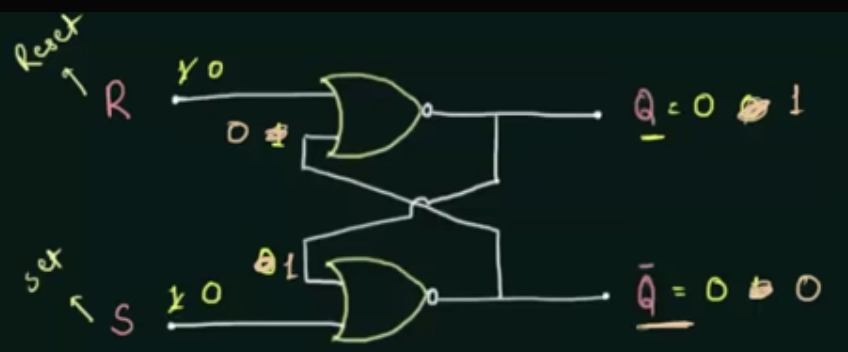 Reset
R 1 0
0
Q = 0 1
1
Set
S 1 0
Q̄ = 0 0